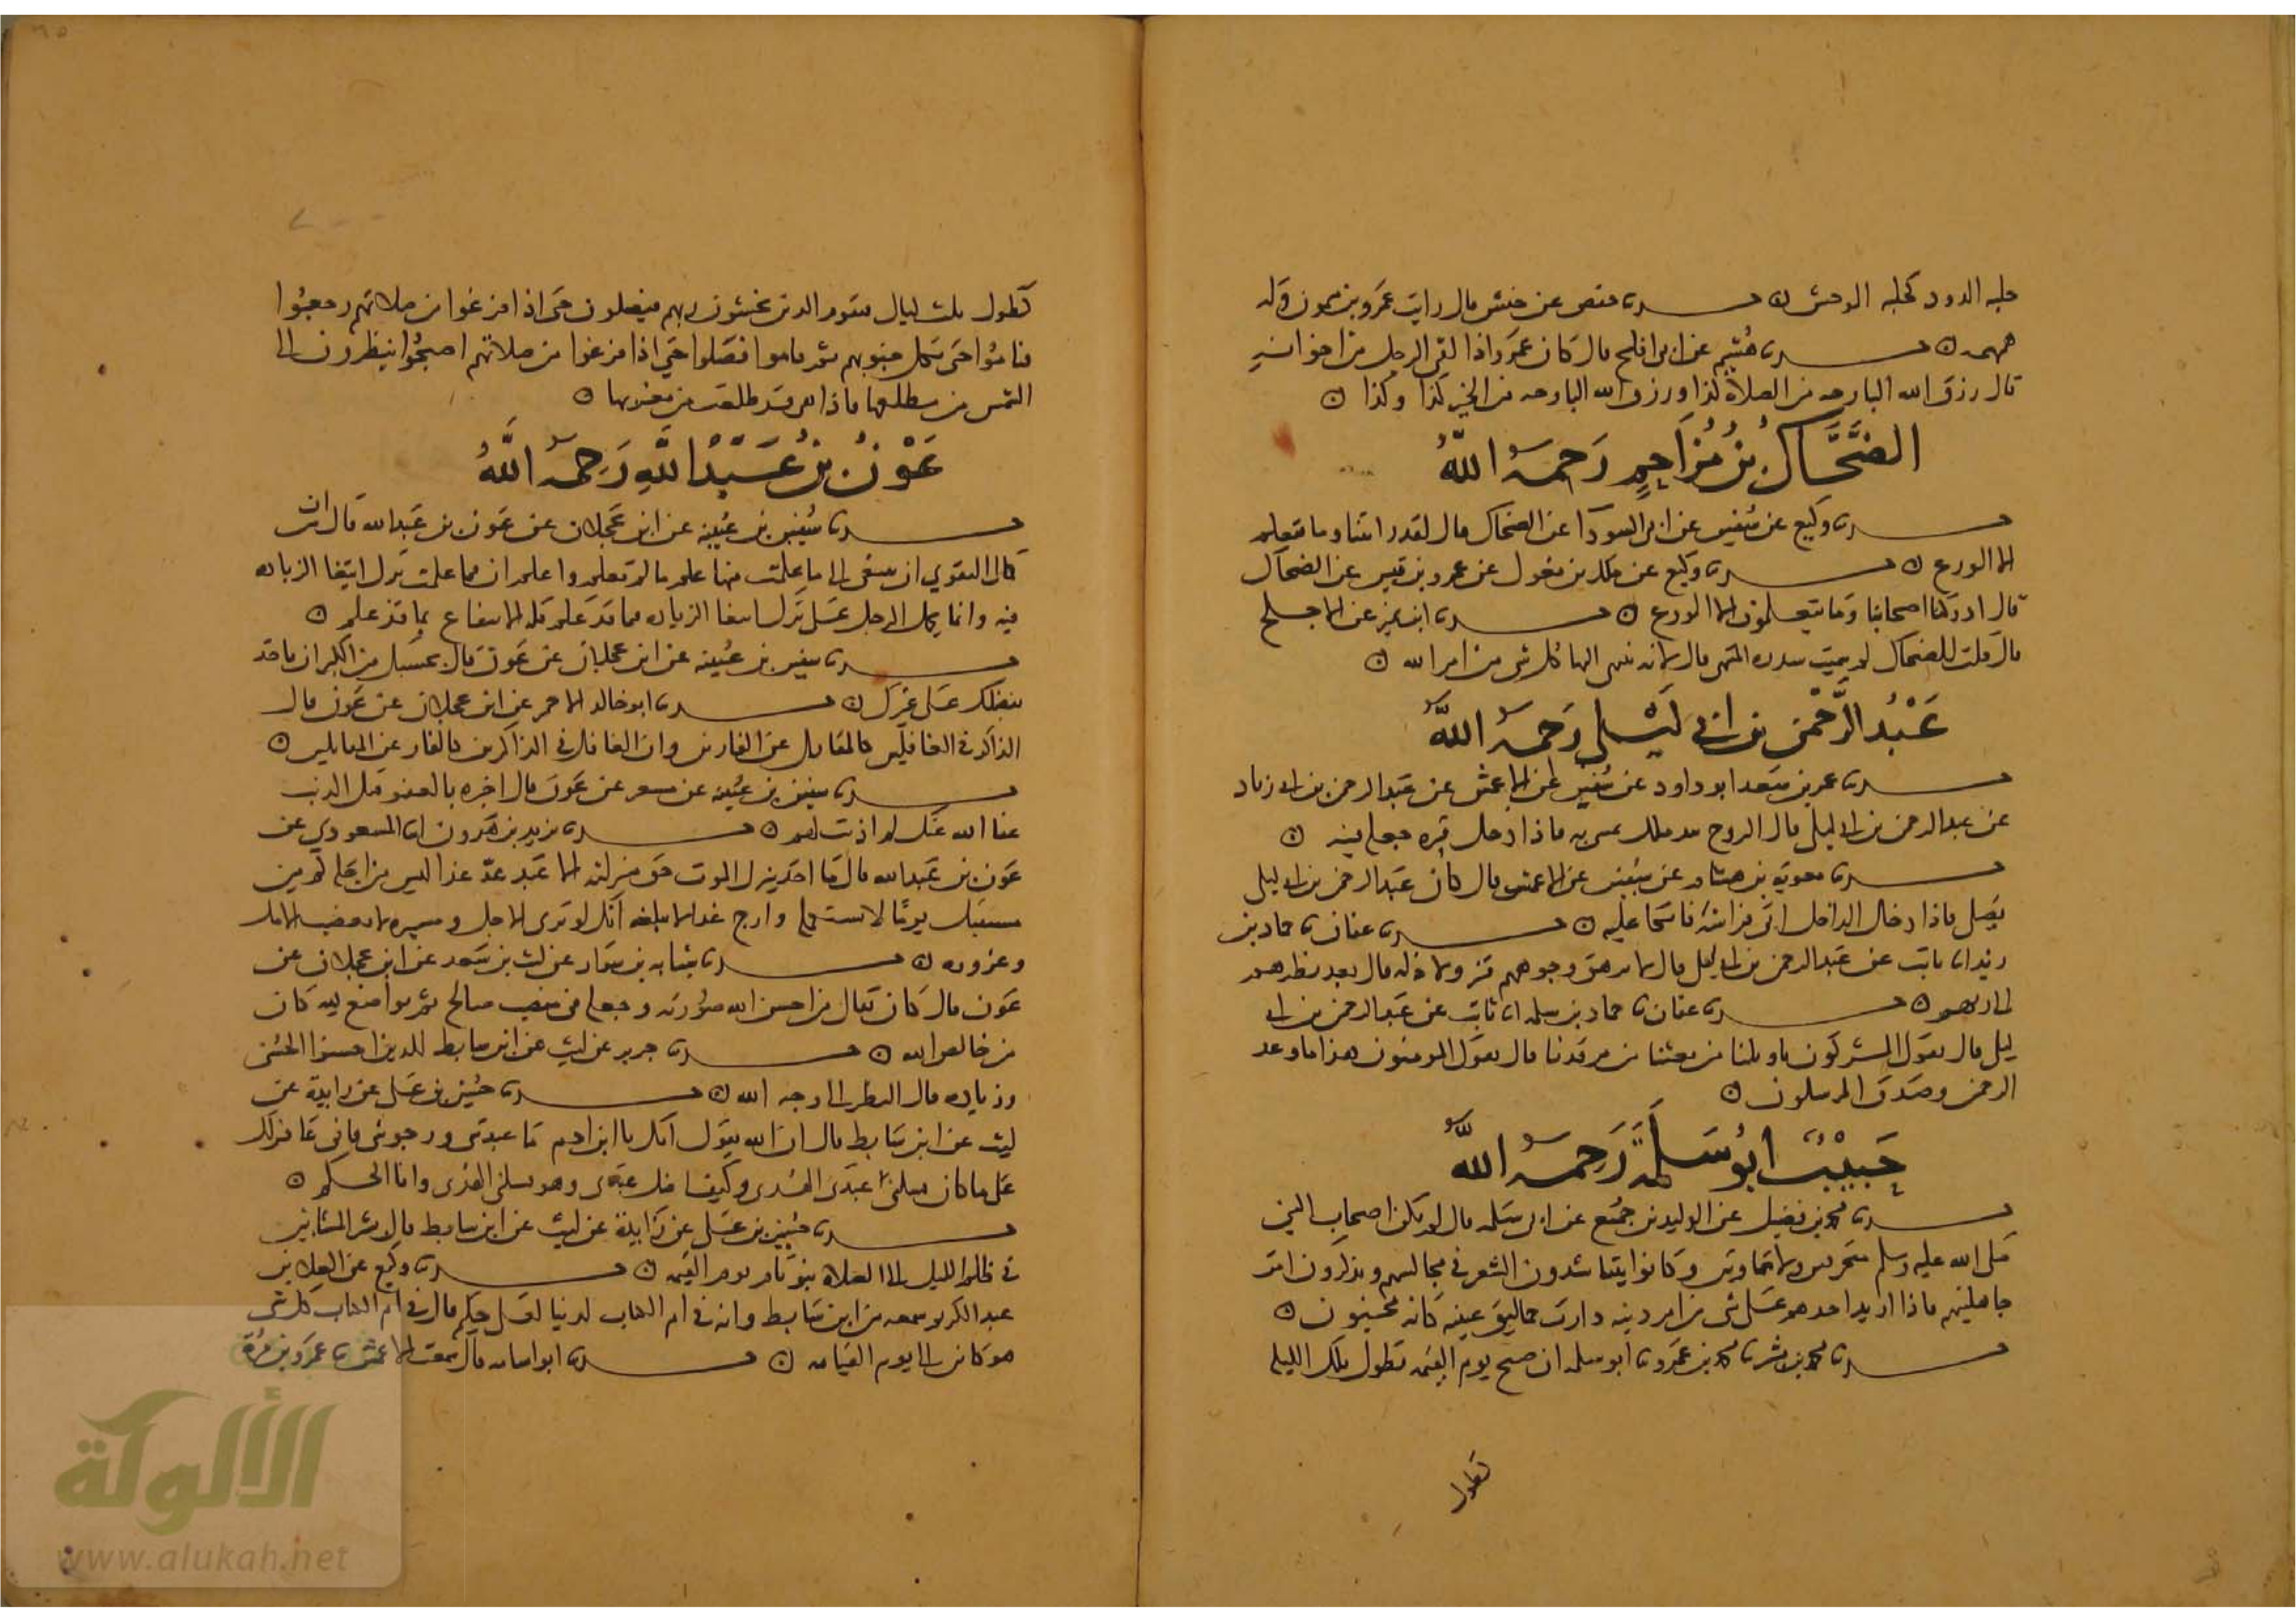 حدثنا حفص عن حنش قال رايت عمرو بن ميمون وله
همهمه حدثنا هشيم عن ابي بلج قال كان عمرو اذا لقي الرجل من اخوانه
قال رزق الله البارحه من الصلاة كذا ورزق الله البارحه من الخير كذا وكذا
الضَّحَّاكُ بنُ مُزَاحِمٍ رَحِمَهُ اللهُ
حدثنا وكيع عن سفين عن ابي السودا عن الضحاك قال لقد رايتنا وما نتعلم
الا الورع حدثنا وكيع عن ملك بن مغول عن عمرو بن قيس عن الضحاك
قال ادركنا اصحابنا وما يتعلمون الا الورع حدثنا ابن نمير عن الاجلح
قال قلت للضحاك لم سميت سدره المنتهى قال لانه ينتهي اليها كل شي من امر الله
عَبْدُ الرَّحْمنِ بن ابي لَيْلى رَحِمَهُ اللهُ
حدثنا عمر بن سعد ابو داود عن سفين عن الاعمش عن عبد الرحمن بن ابي زياد
عن عبد الرحمن بن ابي ليلى قال الروح بيد ملك يمشي به فاذا دخل قبره جعله فيه
حدثنا معويه بن هشام عن سفين عن الاعمش قال كان عبد الرحمن بن ابي ليلى
يصلي فاذا دخل الداخل اتى فراشه فاتكا عليه حدثنا عفان نا حماد بن
زيد انا ثابت عن عبد الرحمن بن ابي ليلى قال لا يرهق وجوههم قتر ولا ذله قال بعد نظرهم
الى ربهم حدثنا عفان نا حماد بن سلمه انا ثابت عن عبد الرحمن بن ابي
ليلى قال يقول المشركون ياويلنا من بعثنا من مرقدنا قال يقول المومنون هذا ما وعد
الرحمن وصدق المرسلون
حَبيْبٌ ابُو سَلَمَةَ رَحِمَهُ اللهُ
حدثنا محمد بن فضيل عن الوليد بن جميع عن ابي سلمه قال لم يكن اصحاب النبي
صلى الله عليه وسلم متحزقين ولا متماوتين وكانوا يتناشدون الشعر في مجالسهم ويذكرون امر
جاهليتهم فاذا اريد احدهم على شي من امر دينه دارت حماليق عينيه كانه مجنون
حدثنا محمد بن بشر نا محمد بن عمرو نا ابو سلمه ان صبح يوم القيمه تطول تلك الليله
تطول
كطول ثلث ليال فيقوم الذين يخشون ربهم فيصلون حتى اذا فرغوا من صلاتهم رجعوا
فناموا حتى تكل جنوبهم ثم قاموا فصلوا حتى اذا فرغوا من صلاتهم اصبحوا ينظرون الى
الشمس من مطلعها فاذا هي قد طلعت من مغربها
عَوْنُ بنُ عَبْدِ اللهِ رَحِمَهُ اللهُ
حدثنا سفين بن عيينه عن ابن عجلان عن عون بن عبد الله قال ان من
كمال التقوي ان تبتغي الى ما علمت منها علم ما لم تعلم واعلم ان مما علمت ترك ابتغا الزياده
فيه وانما يحمل الرجل على ترك ابتغا الزياده فيما قد علم قله الانتفاع بما قد علم
حدثنا سفين بن عيينه عن ابن عجلان عن عون قال بحسبك من الكبر ان تاخذ
بفضلك على غيرك حدثنا ابو خالد الاحمر عن ابن عجلان عن عون قال
الذاكر في الغافلين كالمقاتل عن الفارين وان الغافل في الذاكرين كالفار عن المقاتلين
حدثنا سفين بن عيينه عن مسعر عن عون قال اخبره بالعفو قبل الذنب
عفا الله عنك لم اذنت لهم حدثنا يزيد بن هرون انا المسعودي عن
عون بن عبد الله قال ما احد ينزل الموت حق منزلته الا عبد عدّ غدا ليس من اجله كم من
مستقبل يوما لا يستكمله وراج غدا لا يبلغه انك لو ترى الاجل ومسيره لابغضت الامل
وغروره حدثنا شبابه بن سوار عن ليث بن سعد عن ابن عجلان عن
عون قال كان يقال من احسن الله صورته وجعله في منصب صالح ثم تواضع لله كان
من خالص الله حدثنا جرير عن ليث عن ابن سابط للذين احسنوا الحسنى
وزياده قال النظر الى وجه الله حدثنا حسين بن علي عن زايدة عن
ليث عن ابن سابط قال ان الله يقول انك يا ابن ادم ما عبدتني ورجوتني فاني غافر لك
على ما كان
حدثنا حسين بن علي عن زايدة عن ليث عن ابن سابط قال بشر المشائين
في ظلم الليل الى الصلاة بنور تام يوم القيمه حدثنا وكيع عن العلا بن
عبد الكريم سمعه من ابن سابط وانه في ام الكتاب لدينا لعلي حكيم قال في ام الكتاب كل شي
هو كائن الى يوم القيامه حدثنا ابو اسامه قال سمعت الاعمش نا عمرو بن مرة
الألوكة
www.alukah.net